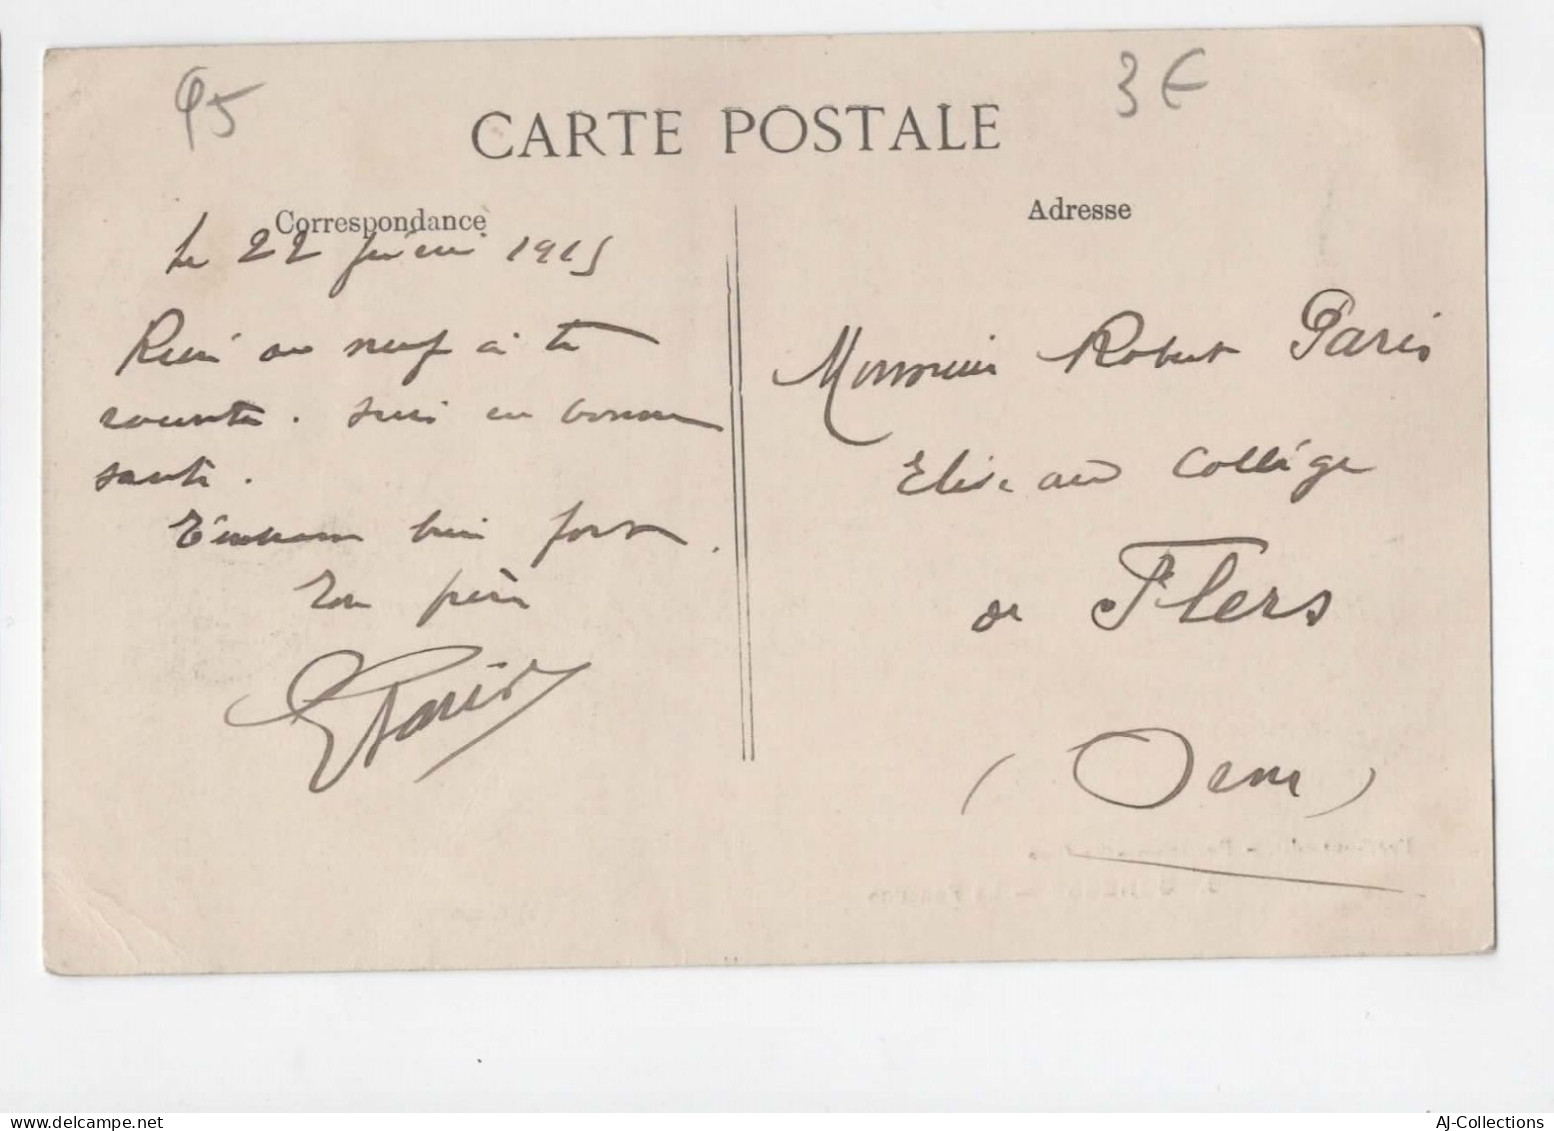 95
3 €
CARTE POSTALE
Correspondance
Le 22 février 1915
Rien de neuf à te
raconter. Suis en bonne
santé.
T'embrasse bien fort.
Ton père
EParis
Adresse
Monsieur Robert Paris
Elève au Collège
de Flers
(Orne)
AJ-Collections